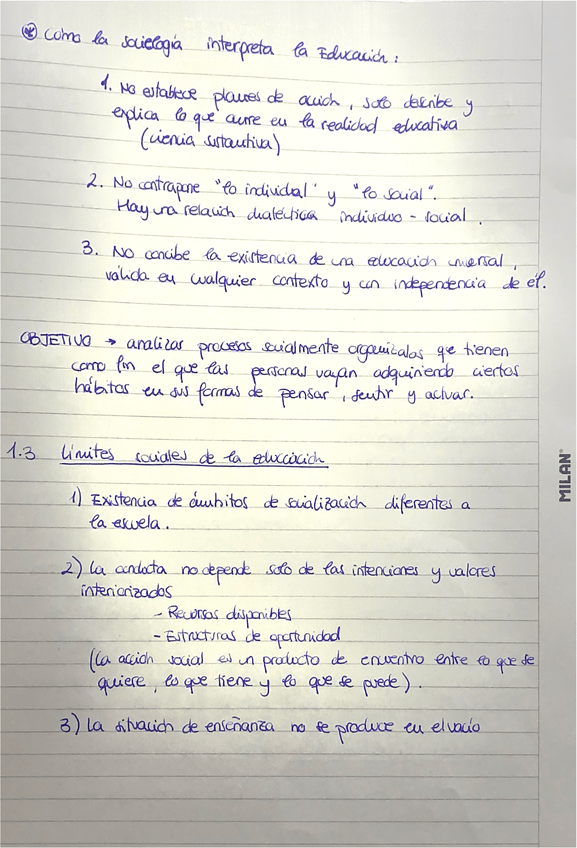 ⊛ Como la sociología interpreta la Educación:
1. No establece planes de acción, solo describe y
explica lo que ocurre en la realidad educativa
(ciencia sustantiva)
2. No contrapone "lo individual" y "lo social".
Hay una relación dialéctica individuo - social.
3. No concibe la existencia de una educación universal,
válida en cualquier contexto y con independencia de él.
OBJETIVO → analizar procesos socialmente organizados que tienen
como fin el que las personas vayan adquiriendo ciertos
hábitos en sus formas de pensar, sentir y actuar.
1.3 Límites sociales de la educación
1) Existencia de ámbitos de socialización diferentes a
la escuela.
2) La conducta no depende solo de las intenciones y valores
interiorizados
- Recursos disponibles
- Estructuras de oportunidad
(La acción social es un producto de encuentro entre lo que se
quiere, lo que tiene y lo que se puede).
3) La situación de enseñanza no se produce en el vacío
MILAN